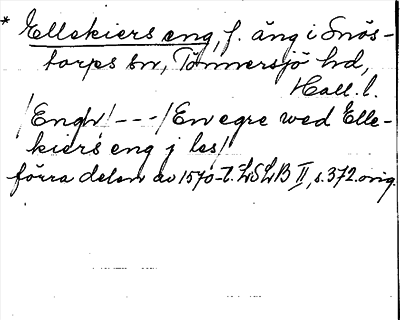 * Ellekiers eng, f. äng i Snös-
torps sn, Tönnersjö hd,
Hall. l.
/Engh/ - - - /En egre wed Elle-
kiers eng j les/
förra delen av 1570-t. LSLB II, s. 372. orig.